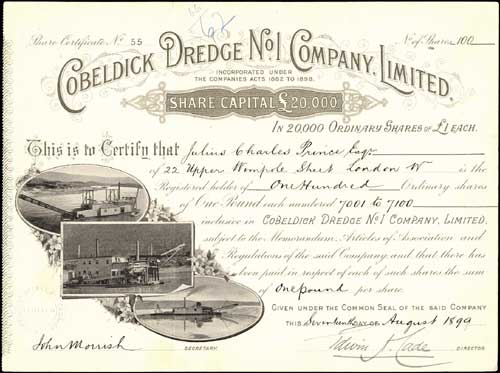 Share Certificate No 55
No of Shares 100
COBELDICK DREDGE No1 COMPANY, LIMITED.
INCORPORATED UNDER
THE COMPANIES ACTS 1862 TO 1898.
SHARE CAPITAL £20,000.
IN 20,000 ORDINARY SHARES OF £1 EACH.
This is to Certify that Julius Charles Prince Esqr
of 22 Upper Wimpole Street London W is the
Registered holder of One Hundred Ordinary shares
of One Pound each numbered 7001 to 7100
inclusive in COBELDICK DREDGE No1 COMPANY, LIMITED,
subject to the Memorandum, Articles of Association and
Regulations of the said Company and that there has
been paid in respect of each of such shares the sum
of One pound per share.
GIVEN UNDER THE COMMON SEAL OF THE SAID COMPANY
THIS Seventeenth DAY OF August 1899
John Morrish SECRETARY.
DIRECTOR